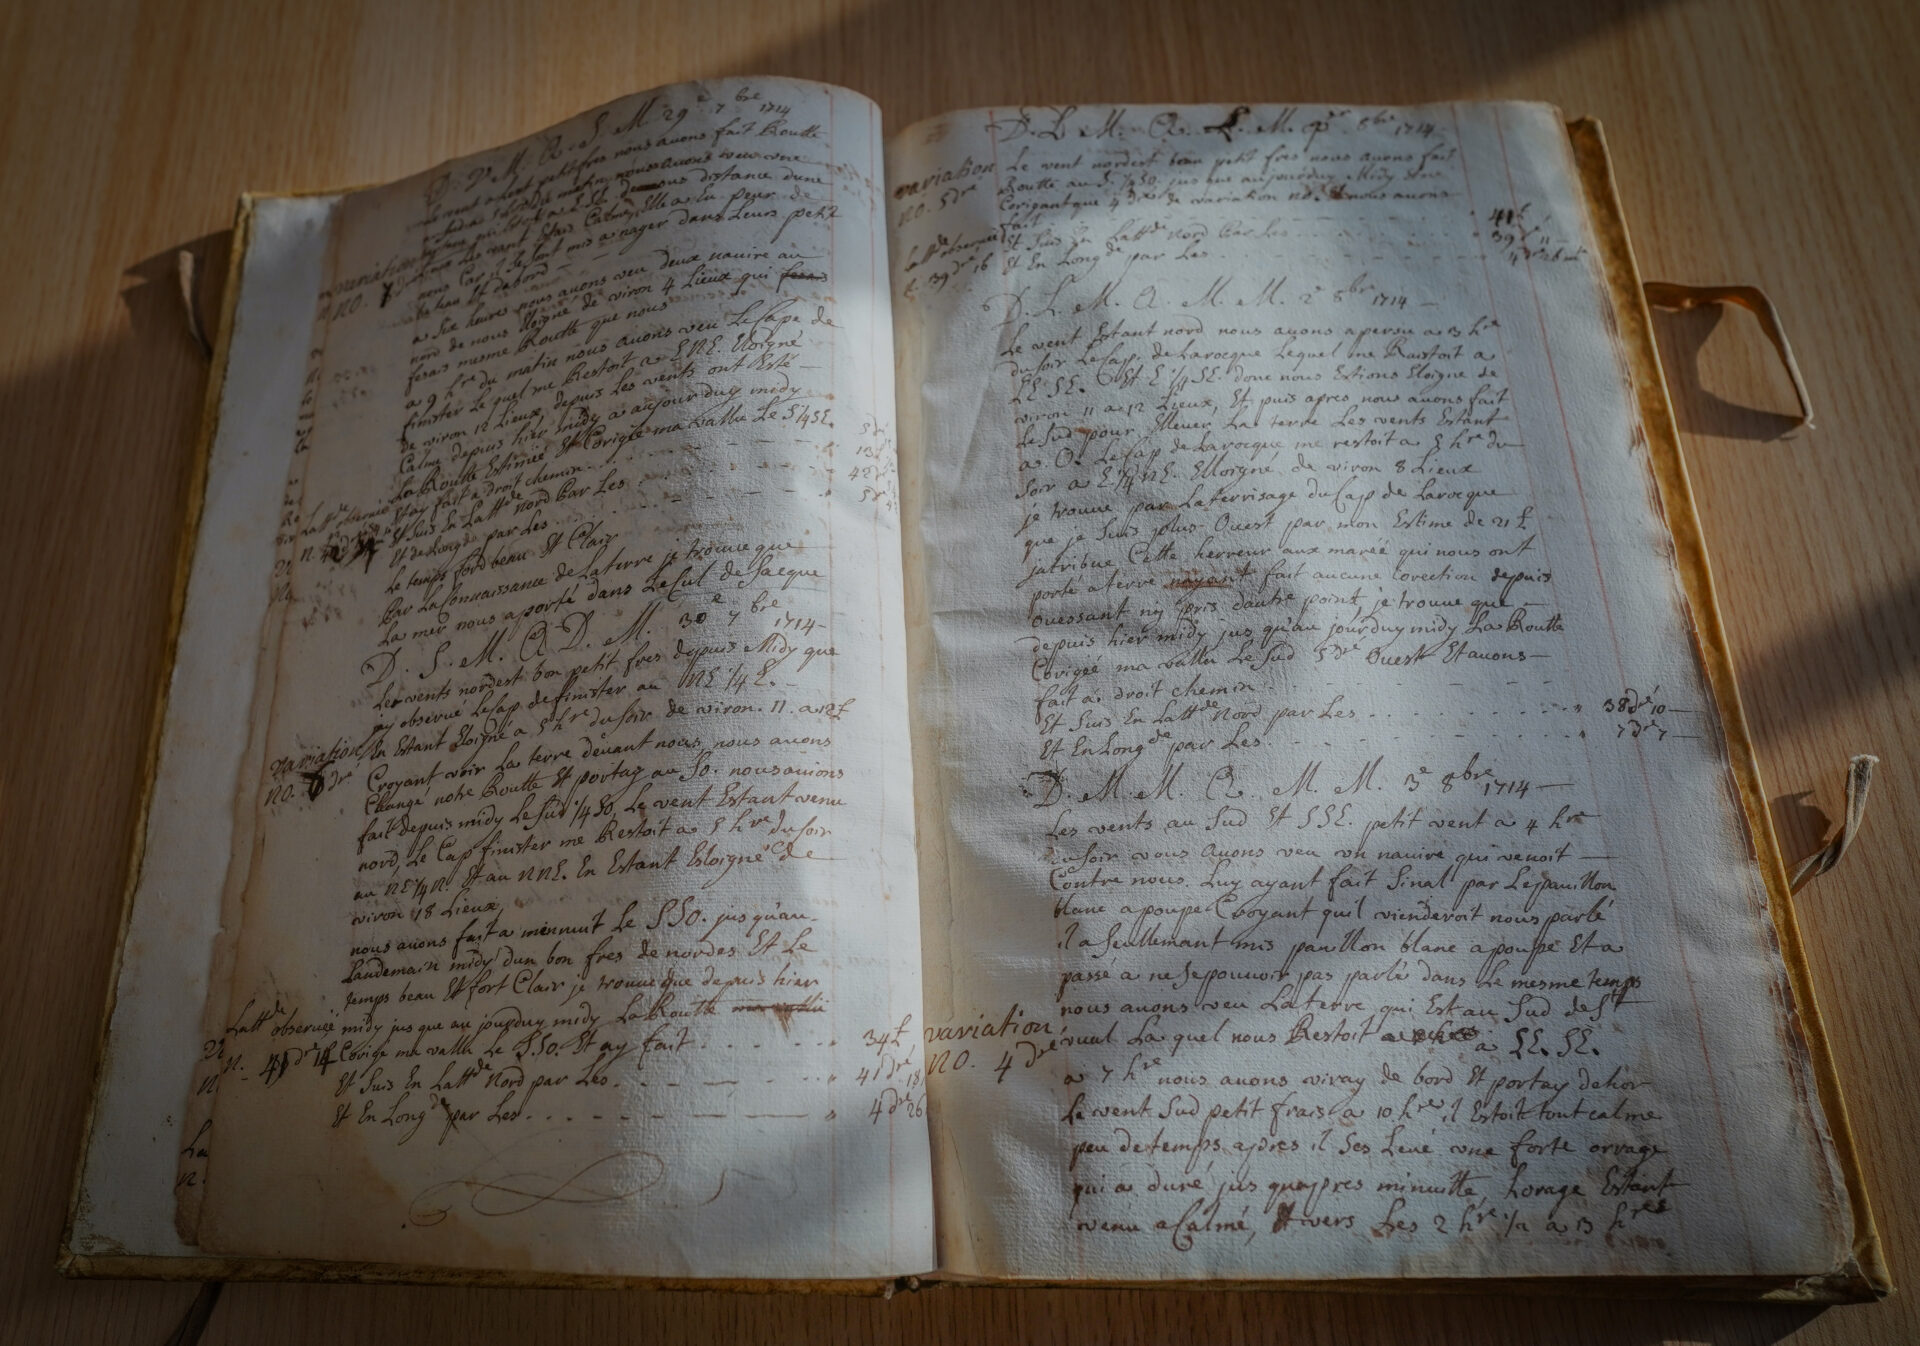 D. V. M. A. S. M. 29e 7bre 1714
Le vent a lent petit fres nous auons fait Routte
matin nous auons veu une
distance dune
Estais Calme, Elle a Eu peur de
nous Car il se sont mis a nager dans Leurs petit
de bord
variation
no. 7 dre
a six heures nous auons veu deux nauire au
nord de nous Eloigné de viron 4 Lieux qui fesais
fesais mesme Routte que nous
a 9 hre du matin nous auons veu Le Cape de
finister Le quel me Restoit a E.N.E. Eloigné
de viron 12 Lieux, depuis Les vents ont Esté
Calme depuis hier midy a aujourduy midy
La Routte Estimée Et Corigée ma vallu Le S 1/4 SE.
Et ay fait a droit chemin
Lattde observée
Et Suis En Lattde Nord Par Les
Et de Longde par Les
Le temps ford beau Et Clair
Par La Connaissance de La terre je trouue que
La mer nous a porté dans Le Cul de sacque
D. S. M. A D. M. 30e 7bre 1714
Les vents nordest bon petit fres depuis Midy que
jay obserué Le Cap de finister au NE 1/4 E.
En Estant Eloigné a 5 hre du soir de viron. 11. a 12 L
variation
no. 6 dre
Croyant voir La terre deuant nous, nous auons
Changé notre Routte Et portay au So. nous auions
fait depuis midy Le Sud 1/4 So, Le vent Estant venu
nord, Le Cap finister me Restoit a 5 hre du soir
au NE 1/4 N. Et au NNE. En Estant Esloigné de
viron 18 Lieux,
nous auons fait a minnuit Le SSo. jus qu'au
Landemain midy dun bon fres de nordes Et Le
temps beau Et fort Clair je trouue que depuis hier
Lattde observéé
midy jus que au jourduy midy La Routte ma vallu
n. 41 dre 14
Corige ma vallu Le S.So. Et ay fait . . . . 34 L
Et Suis En Lattde Nord par Les . . . . 41 dre 18
Et En Longde par Les . . . . 4 dre 26
D. L. M. A. L. M. 1er 8bre 1714
variation
no. 5 dre
Le vent nordest beau petit fres nous auons fait
Routte au S. 1/4 So, jus que aujourduy Midy
Corigant que 4 dre de variation no. Et nous auons
fait . . . . 41 L
Lattde observéé
39 dre 16
Et Suis En Lattde Nord Par Les . . . . 39 dre 11
Et En Longde par Les . . . . 4 dre 26 mte
D. L. M. A. M. M. 2e 8bre 1714
Le vent Estant nord nous auons apersu a 3 hre
du soir Le Cap. de Larocque Lequel me Ruistoit a
LE. SE. Et E 1/4 SE. donc nous Estions Eloigne de
viron 11 a 12 Lieux, Et puis apres nous auons fait
Le Sud pour Elleuer La terre Les vents Estant
a. O. Le Cap de Larocque me restoit a 5 hre du
soir a E. 1/4 NE. Elloigné de viron 8 Lieux
je trouue par La terrisage du Cap de Larocque
que je Suis plus Ouest par mon Estime de 21 L
jatribue Cette herreur aux maréé qui nous ont
porté a terre nayant fait aucune Corection depuis
Ouessant ny pris dautre point, je trouue que
depuis hier midy jus qu'au jourduy midy La Routte
Corigéé ma vallu Le Sud 5 dre Ouest Et auons
fait a droit chemin . . . .
Et Suis En Lattde Nord par Les . . . . 38 dre 10
Et En Longde par Les . . . . 7 dre 7
D. M. M. A. M. M. 3e 8bre 1714
Les vents au Sud Et SSE. petit vent a 4 hre
du soir nous auons veu un nauire qui venoit
Contre nous. Luy ayant fait Sinal par Le pauillon
blanc a poupe Croyant quil vienderoit nous parlé
il a Seullemant mis pauillon blanc a poupe Et a
passé a ne se pouuoir pas parlé dans Le mesme temps
nous auons veu La terre qui Est au Sud de St
variation
no. 4 dre
vual La quel nous Restoit a LE. SE.
a 7 hre nous auons viray de bord Et portay dehor
Le vent Sud petit frais a 10 hres il Estoit tout calme
peu de temps apres il Ses Leué une forte orrage
qui a duré jus qu'apres minuitte, horage Estant
venu a Calmé, Et vers Les 2 hre 1/2 a 3 hres